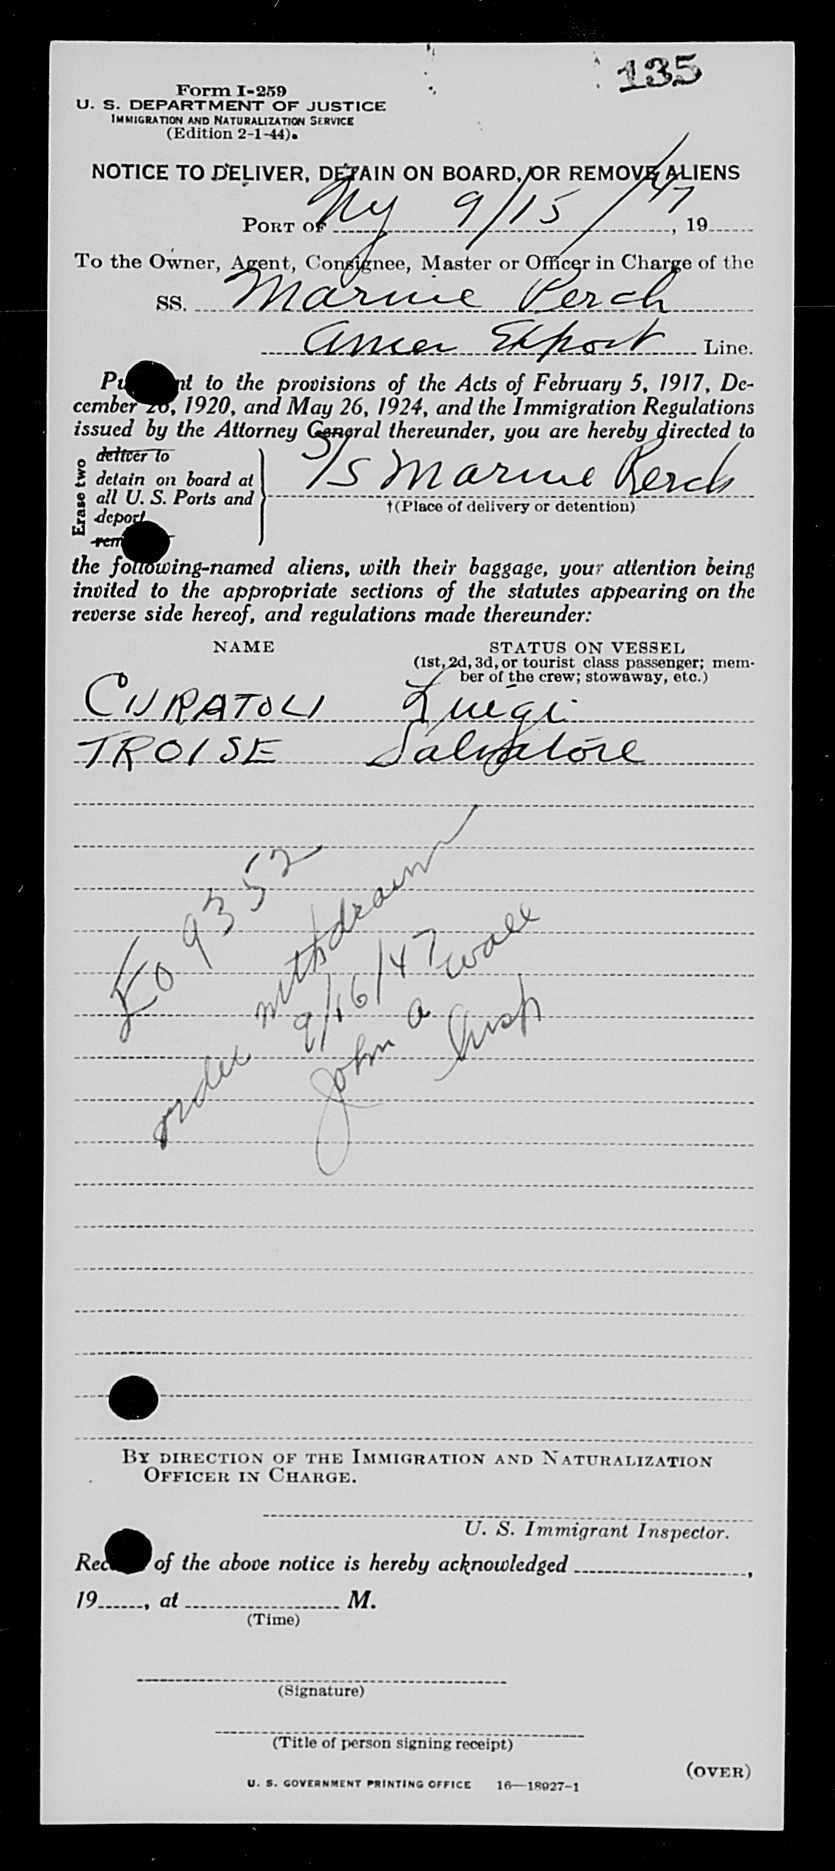 135
Form I-259
U. S. DEPARTMENT OF JUSTICE
IMMIGRATION AND NATURALIZATION SERVICE
(Edition 2-1-44).
NOTICE TO DELIVER, DETAIN ON BOARD, OR REMOVE ALIENS
PORT OF NY 9/15/47, 19
To the Owner, Agent, Consignee, Master or Officer in Charge of the
SS. Marine Perch
Amer Export Line.
Pu nt to the provisions of the Acts of February 5, 1917, De-
cember 26, 1920, and May 26, 1924, and the Immigration Regulations
issued by the Attorney General thereunder, you are hereby directed to
Erase two
deliver to
detain on board at
all U. S. Ports and
deport
rem
S/S Marine Perch
†(Place of delivery or detention)
the following-named aliens, with their baggage, your attention being
invited to the appropriate sections of the statutes appearing on the
reverse side hereof, and regulations made thereunder:
NAME STATUS ON VESSEL
(1st, 2d, 3d, or tourist class passenger; mem-
ber of the crew; stowaway, etc.)
CURATOLI Luigi
TROISE Salvatore
Eo 9352
order withdrawn
9/16/47
John A Wall
Insp
BY DIRECTION OF THE IMMIGRATION AND NATURALIZATION
OFFICER IN CHARGE.
U. S. Immigrant Inspector.
Rec of the above notice is hereby acknowledged ,
19 , at M.
(Time)
(Signature)
(Title of person signing receipt)
(OVER)
U. S. GOVERNMENT PRINTING OFFICE 16—18927-1